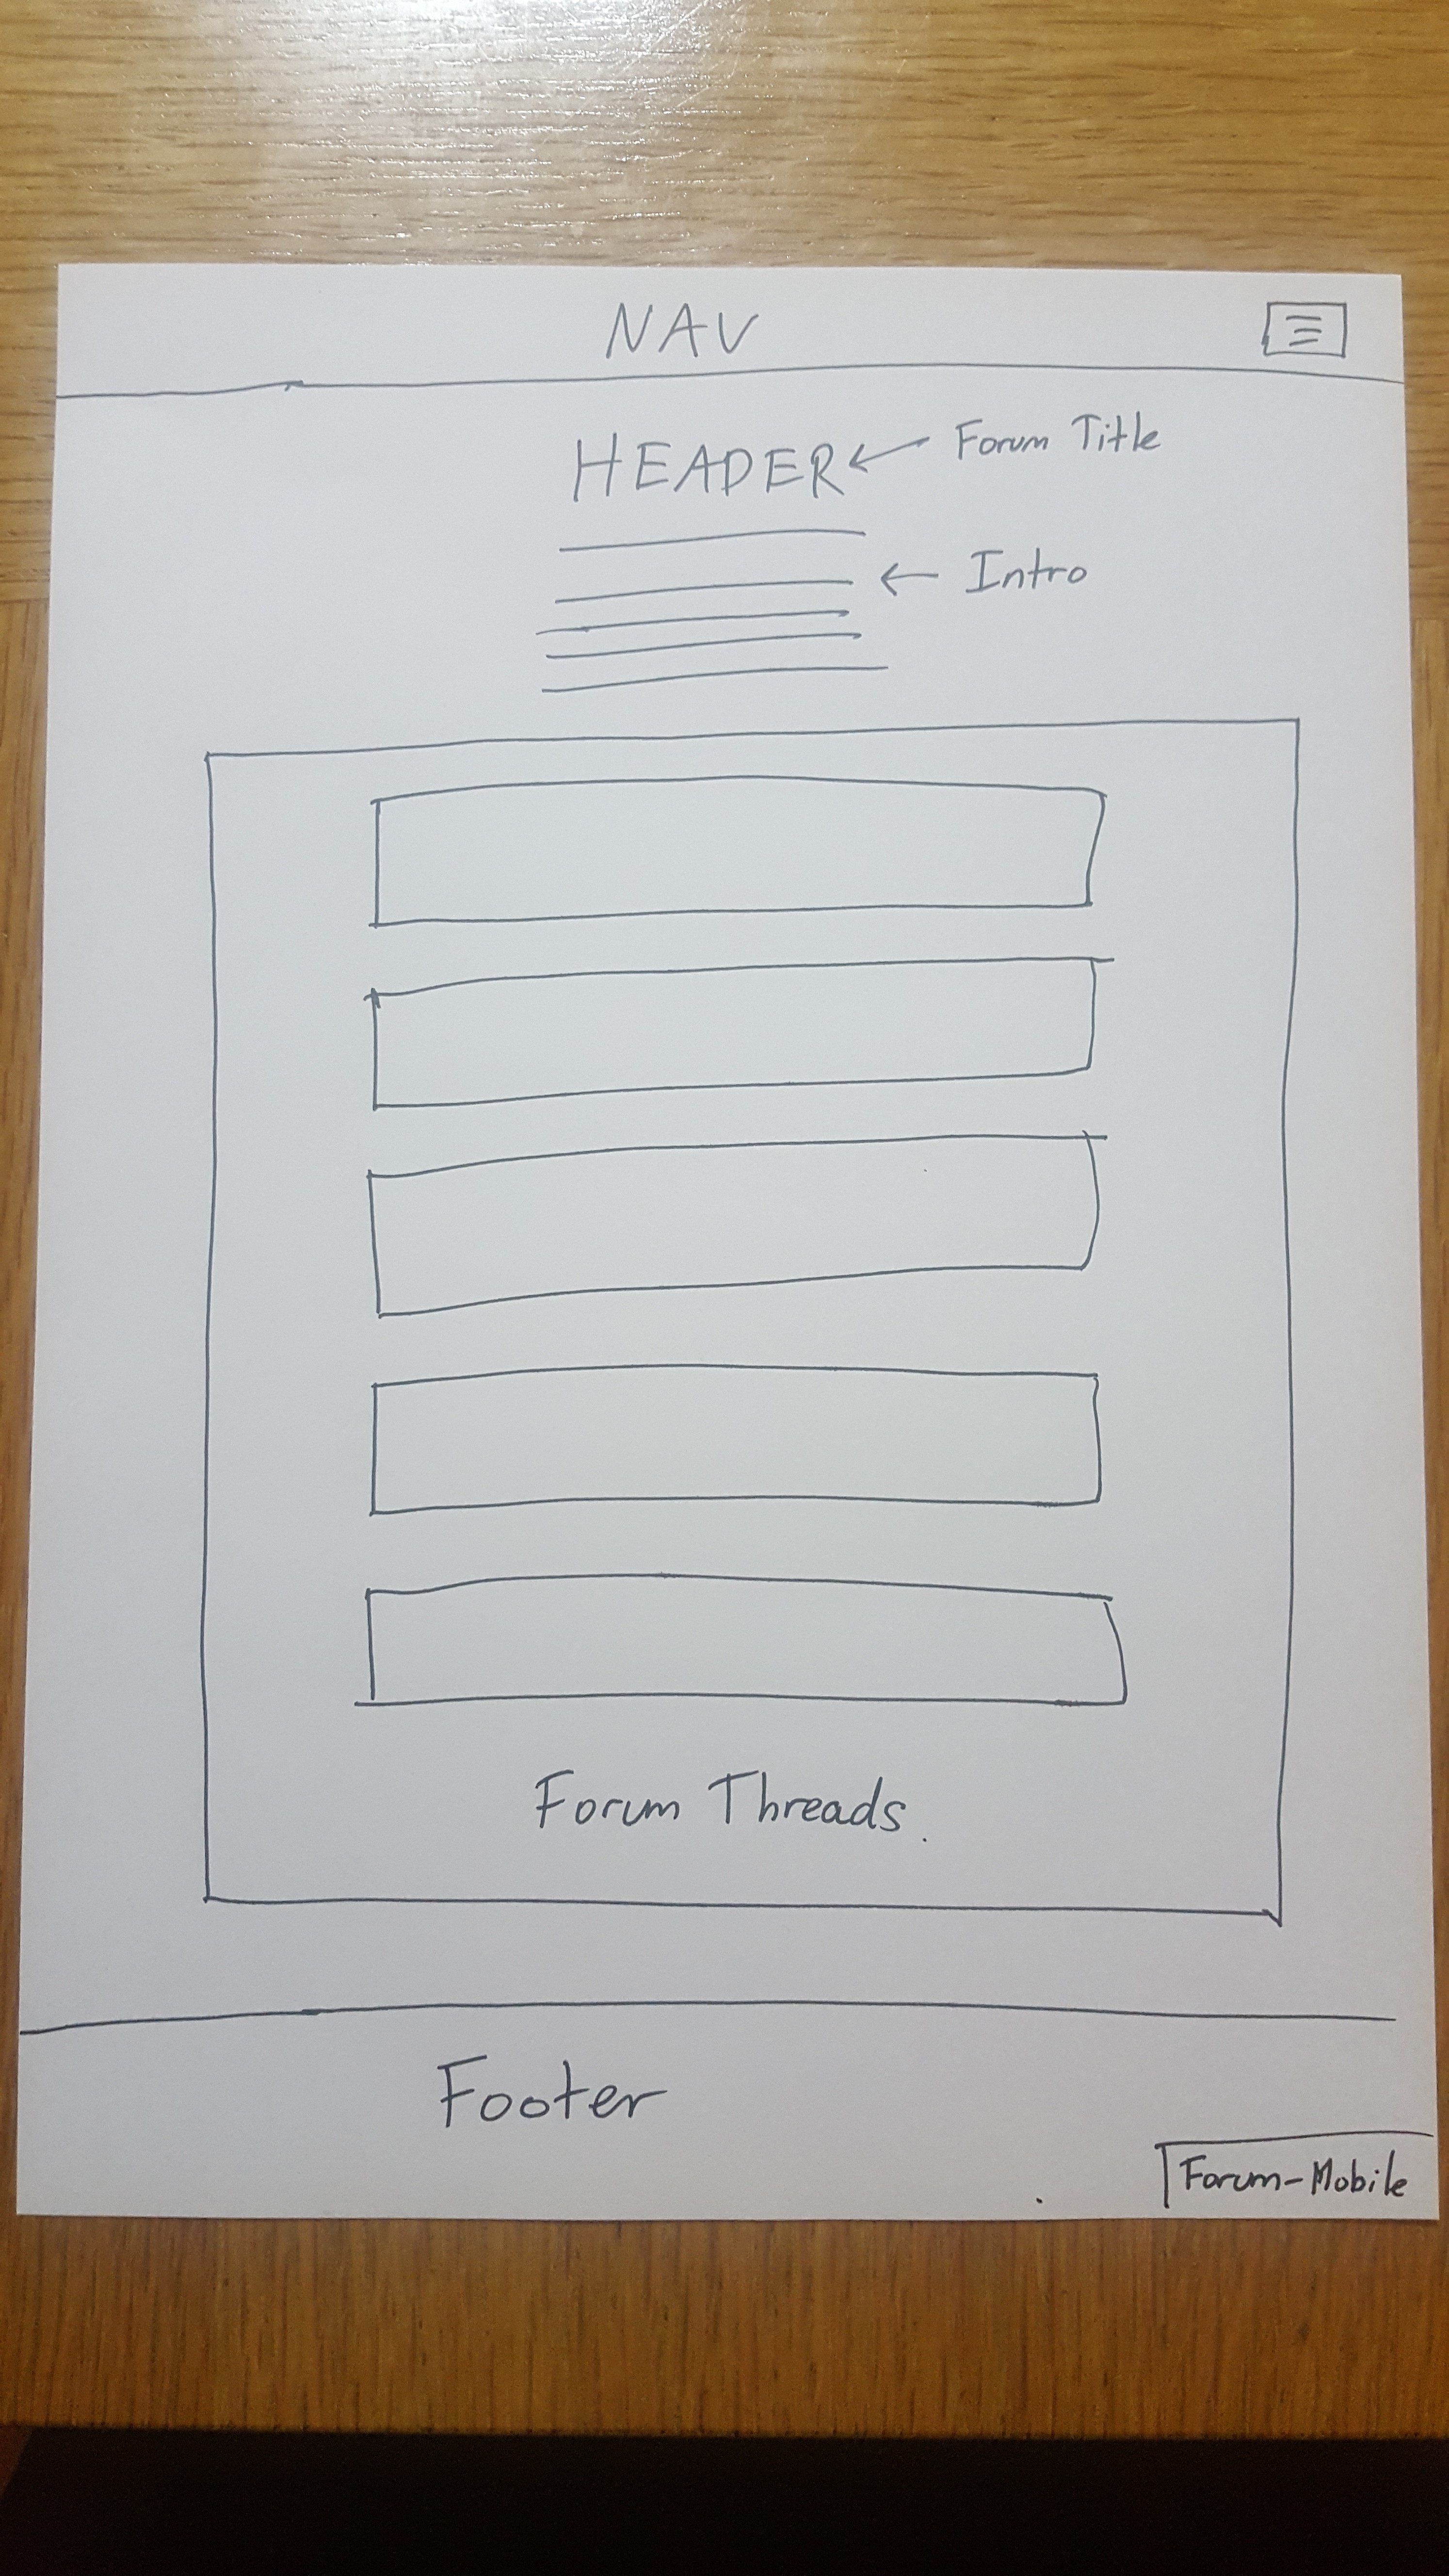 NAV
HEADER
Forum Title
Intro
Forum Threads.
Footer
Forum-Mobile